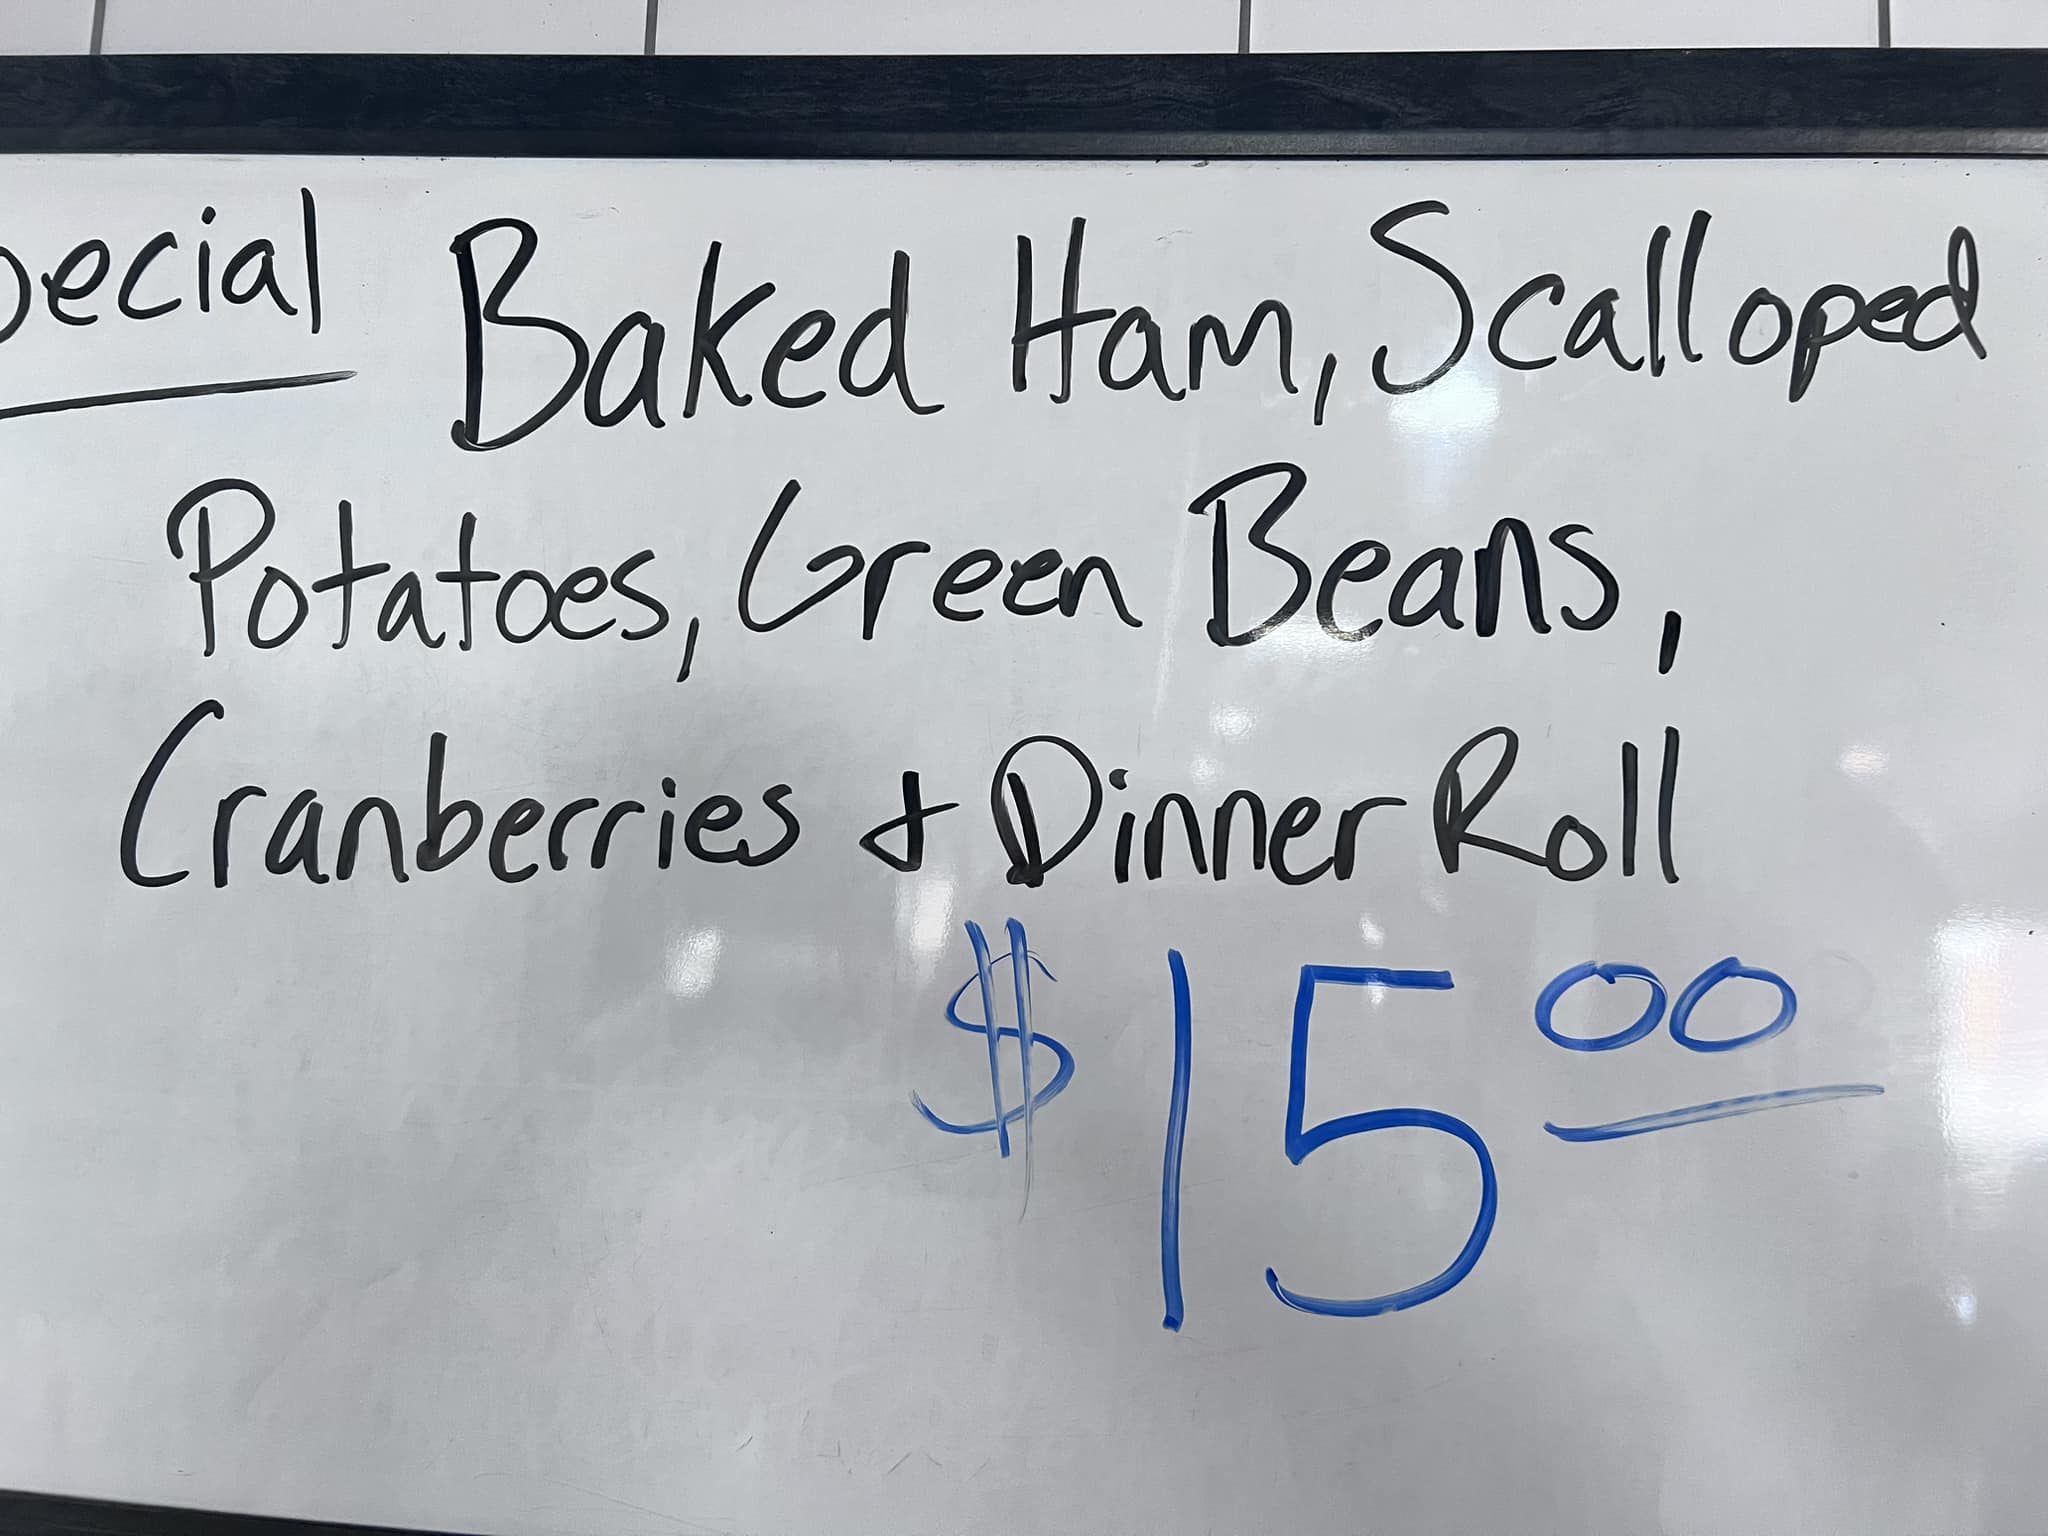 pecial Baked Ham, Scalloped
Potatoes, Green Beans,
Cranberries & Dinner Roll
$15.00